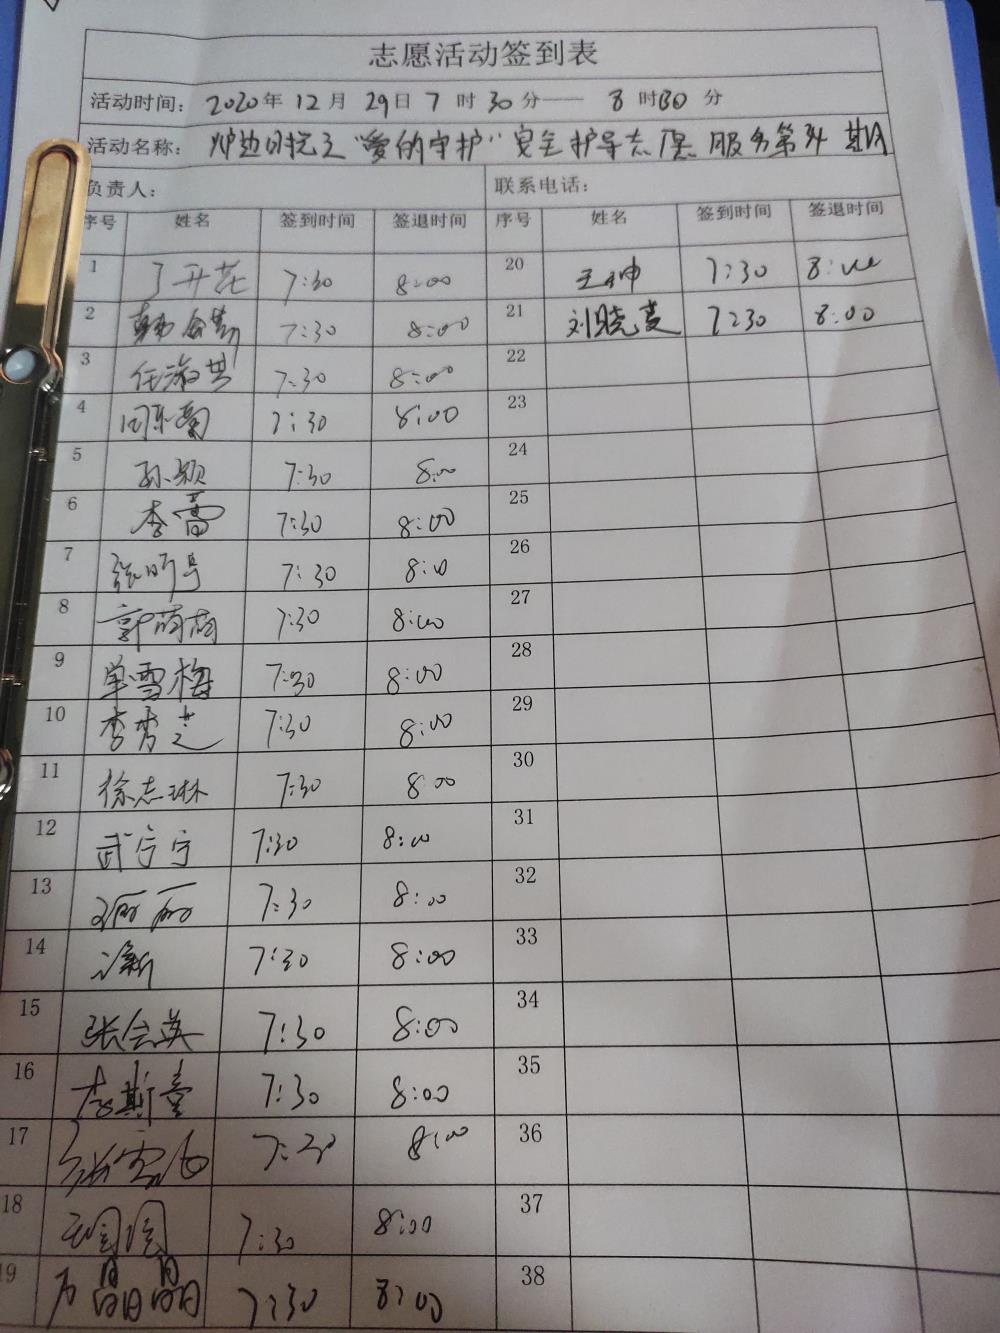 志愿活动签到表
活动时间: 2020年 12月 29日 7时 30分—— 8时30分
活动名称: "爱的守护"安全护导志愿服务第
负责人: 联系电话:
序号 姓名 签到时间 签退时间 序号 姓名 签到时间 签退时间
1 7:30 8:00 20 王坤 7:30 8:00
2 7:30 8:00 21 刘晓 7:30 8:00
3 任淑 7:30 8:00 22
4 周乐菊 7:30 8:00 23
5 孙颖 7:30 8:00 24
6 李蕾 7:30 8:00 25
7 张 7:30 8:00 26
8 郭萌萌 7:30 8:00 27
9 单雪梅 7:30 8:00 28
10 李秀芝 7:30 8:00 29
11 徐志琳 7:30 8:00 30
12 武宁宁 7:30 8:00 31
13 丽 7:30 8:00 32
14 7:30 8:00 33
15 张会英 7:30 8:00 34
16 李斯 7:30 8:00 35
17 7:30 8:00 36
18 7:30 8:00 37
19 晶晶 7:30 8:00 38